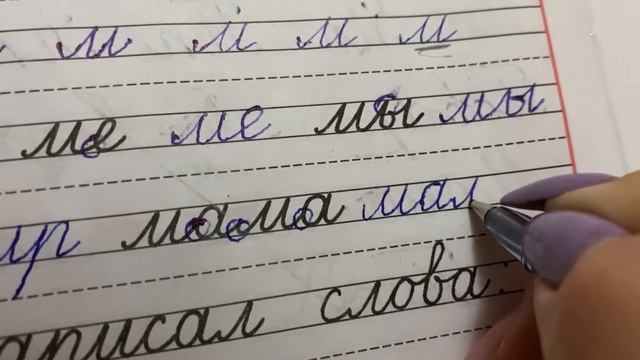 м м м м
ме ме мы мы
мама мам
писал слова.